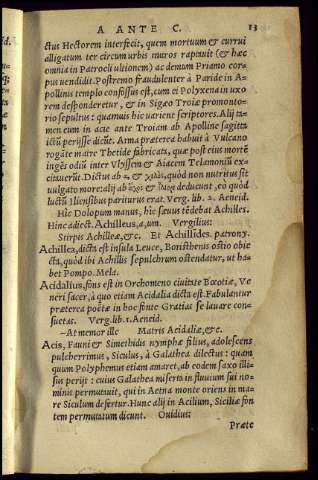 A ANTE C. 13
ctus Hectorem interfecit, quem mortuum & currui
alligatum ter circum urbis muros raptauit (& hæc
omnia in Patrocli ultionem) ac demum Priamo cor-
pus uendidit. Postremo fraudulenter à Paride in A-
pollinis templo confossus est, cum ei Polyxena in uxo
rem desponderetur, & in Sigæo Troiæ promonto-
rio sepultus: quamuis hic uarient scriptores. Alij ta-
men eum in acie ante Troiam ab Apolline sagitta
ictũ perijsse dicũt. Arma præterea habuit à Vulcano
rogatu matris Thetide fabricata, quæ post eius mortẽ
ingẽs odiũ inter Vlyssem & Aiacem Telamoniũ ex-
citauerũt. Dictus ab α, & χιλὸς, quòd non nutritus sit
uulgato more: alij ab ἄχος & deducunt, eò quòd
luctũ Iliensibus pariturus erat. Verg. lib. 2. Aeneid.
Hîc Dolopum manus, hîc sæuus tẽdebat Achilles.
Hinc adiect. Achilleus, a, um. Vergilius:
Stirpis Achilleæ, & c. Et Achillides. patrony.
Achillea, dicta est insula Leuce, Boristhenis ostio obie
cta, quòd ibi Achillis sepulchrum ostendatur, ut ha
bet Pompo. Mela.
Acidalius, fons est in Orchomeno ciuitate Bœotiæ, Ve
neri sacer, à quo etiam Acidalia dicta est. Fabulantur
præterea poëtæ in hoc fonte Gratias se lauare con-
suetas. Verg. lib. 1. Aeneid.
—At memor ille Matris Acidaliæ, &c.
Acis, Fauni & Simethidos nymphæ filius, adolescens
pulcherrimus, Siculus, à Galathea dilectus: quam
quum Polyphemus etiam amaret, ab eodem saxo illi-
sus perijt: cuius Galathea miserta in fluuium sui no-
minis permutauit, qui in Aetna monte oriens in ma-
re Siculum defertur. Hunc alij in Acilium, Siciliæ fon
tem permutatum dicunt. Ouidius:
Præte